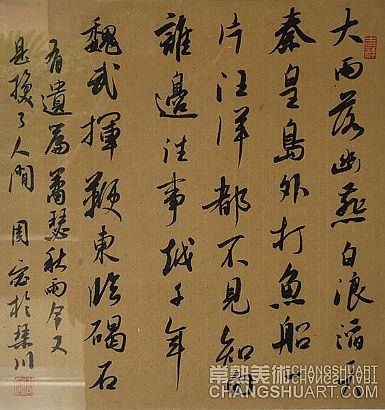 吉祥
大雨落幽燕白浪滔天
秦皇島外打魚船一
片汪洋都不見知向
誰邊往事越千年
魏武揮鞭東臨碣石
有遺篇蕭瑟秋風今又
是換了人間 周於琴川
常熟美術 CHANGSHUART.COM
CHANGSHUART.COM